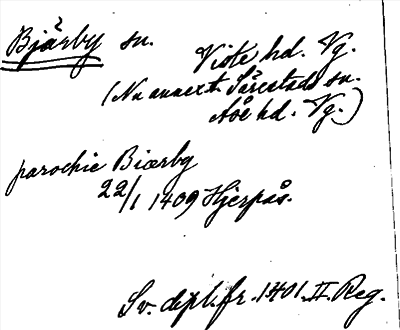 Bjärby sn.
Viste hd. Vg.
(Nu annex t. Särestads sn.
Åse hd. Vg.)
parochie Biærby
22/1 1409 Hjerpås.
Sv. dipl. fr. 1401. II. Reg.